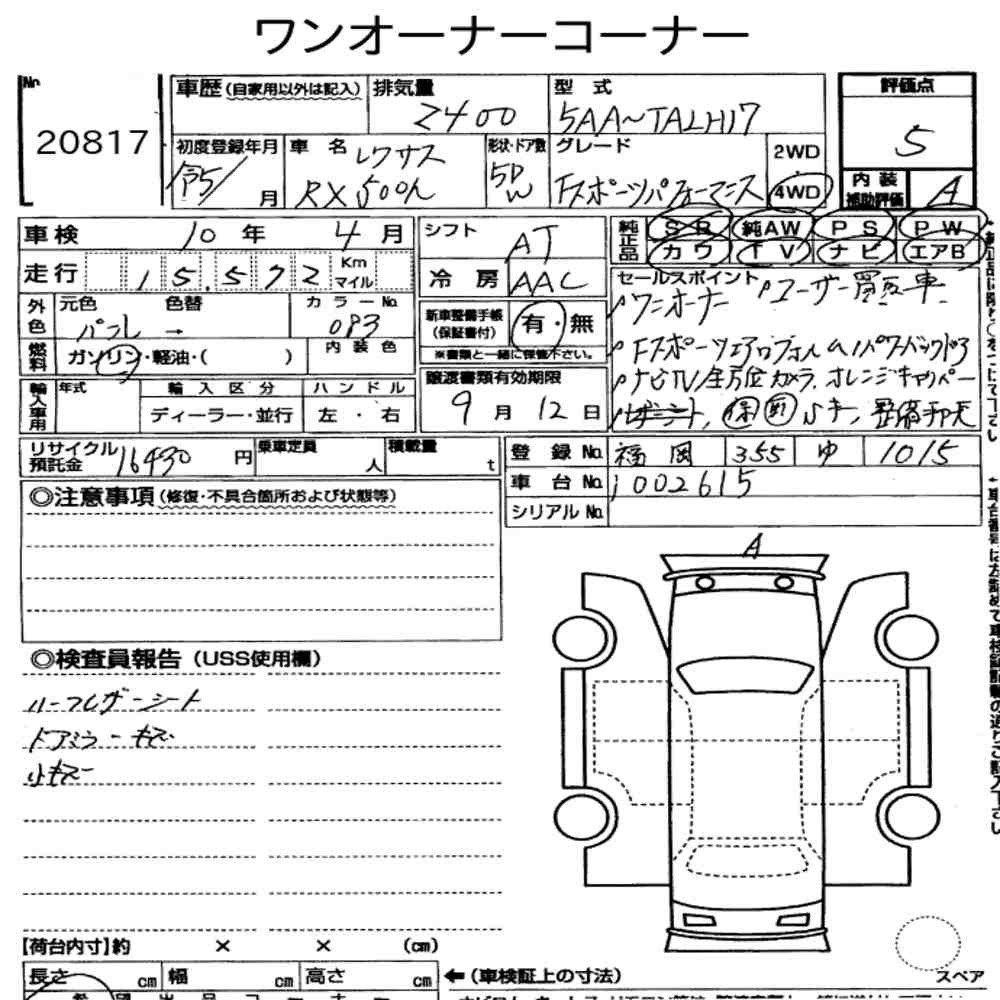 ワンオーナーコーナー
No 20817
車歴(自家用以外は記入) 排気量 2400 型式 5AA-TALH17
評価点 5
初度登録年月 令5/ 月 車名 レクサス RX500h 形状・ドア数 5D W グレード Fスポーツパフォーマンス 2WD 4WD
内装補助評価 A
車検 10年 4月 シフト AT
純正品 SR 純AW PS PW
カワ TV ナビ エアB
走行 15,572 Km マイル 冷房 AAC
外色 元色 パール → 色替 カラーNo. 083
新車整備手帳(保証書付) 有・無
※書類と一緒に保管下さい。
燃料 ガソリン・軽油・( ) 内装色
セールスポイント
ワンオーナー ユーザー買取車
Fスポーツエアロフォルム パワーバックドア
ナビTV 全方位カメラ オレンジキャリパー
レザーシート, 保 取 Sキー, 整備手帳
輸入車用 年式 輸入区分 ハンドル
ディーラー・並行 左・右
譲渡書類有効期限
9月 12日
リサイクル預託金 16430円 乗車定員 人 積載量 t
登録No. 福岡 355 ゆ 1015
車台No. 1002615
シリアルNo.
◎注意事項(修復・不具合箇所および状態等)
A
◎検査員報告(USS使用欄)
ハーフレザーシート
ドアミラーキズ
小キズ
【荷台内寸】約 × × (cm)
長さ cm 幅 cm 高さ cm
←(車検証上の寸法)
スペア